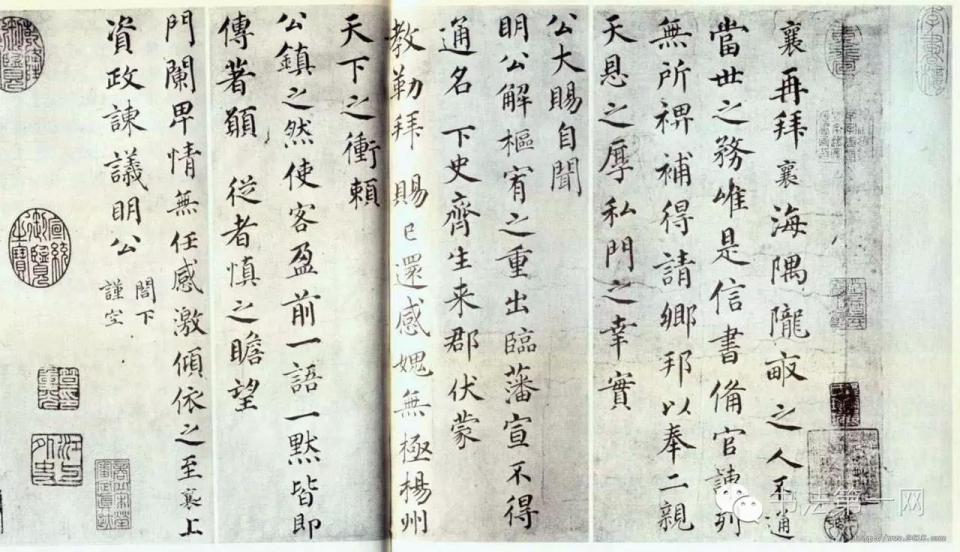 襄再拜襄海隅隴畝之人不通
當世之務唯是信書俻官諫列
無所裨補得請鄉邦以奉二親
天恩之厚私門之幸實
公大賜自聞
明公解樞宥之重出臨藩宣不得
通名 下史齊生来郡伏蒙
教勒拜 賜已還感媿無極楊州
天下之衝賴
公鎮之然使客盈前一語一默皆即
傳著願 從者慎之瞻望
門闌卑情無任感激傾依之至襄上
資政諫議明公
閤下
謹空
宣統御覽之寶
书法第一网